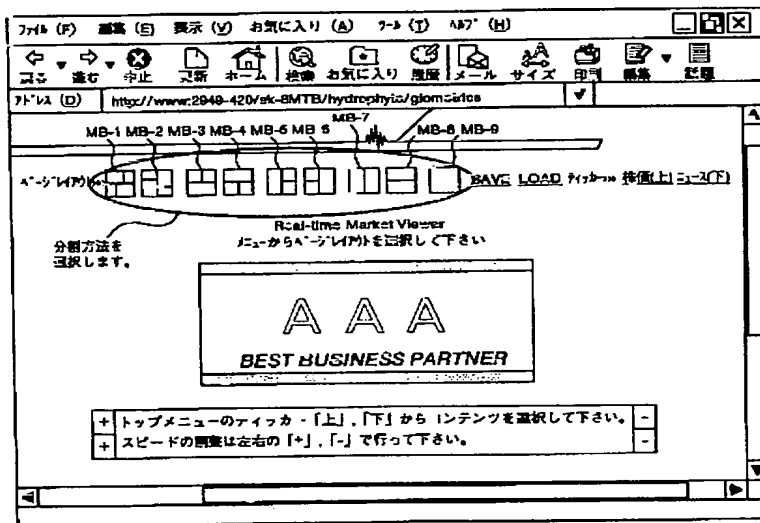 ファイル (F) 編集 (E) 表示 (V) お気に入り (A) ツール (T) ヘルプ (H)
戻る 進む 中止 更新 ホーム 検索 お気に入り 履歴 メール サイズ 印刷 編集
アドレス (D) http://www.2949-420/sk-8MTB/
MB-7
MB-1 MB-2 MB-3 MB-4 MB-5 MB-6 MB-8 MB-9
ページレイアウト SAVE LOAD 株価(上) ニュース(下)
Real-time Market Viewer
メニューからページレイアウトを選択して下さい
分割方法を
選択します。
A A A
BEST BUSINESS PARTNER
+ トップメニューのティッカー「上」,「下」からコンテンツを選択して下さい。 -
+ スピードの調整は左右の「+」,「-」で行って下さい。 -